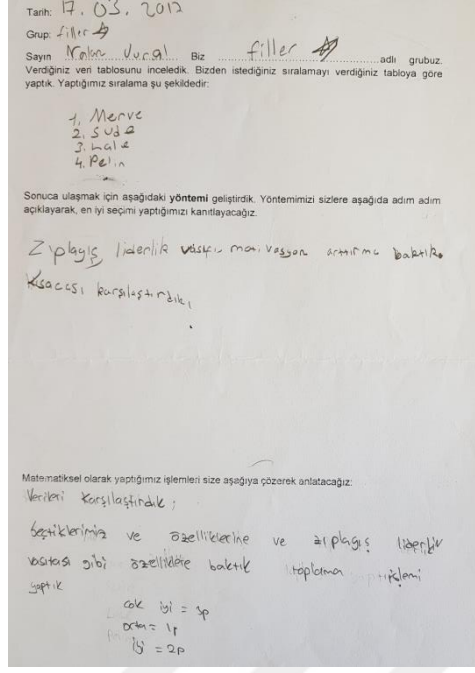 Tarih: 17. 03. 2017
Grup: filler
Sayın Nalan Vural Biz filler adlı grubuz.
Verdiğiniz veri tablosunu inceledik. Bizden istediğiniz sıralamayı verdiğiniz tabloya göre
yaptık. Yaptığımız sıralama şu şekildedir:
1. Merve
2. Sude
3. Lale
4. Pelin
Sonuca ulaşmak için aşağıdaki yöntemi geliştirdik. Yöntemimizi sizlere aşağıda adım adım
açıklayarak, en iyi seçimi yaptığımızı kanıtlayacağız.
Zıplayış liderlik vasfı, motivasyon arttırma baktık.
Kısacası karşılaştırdık,
Matematiksel olarak yaptığımız işlemleri size aşağıya çözerek anlatacağız:
Verileri karşılaştırdık;
Seçtiklerimiz ve özelliklerine ve zıplayış liderlik
vasıtası gibi özelliklere baktık toplama işlemi
yaptık
çok iyi = 3p
orta = 1p
iyi = 2p